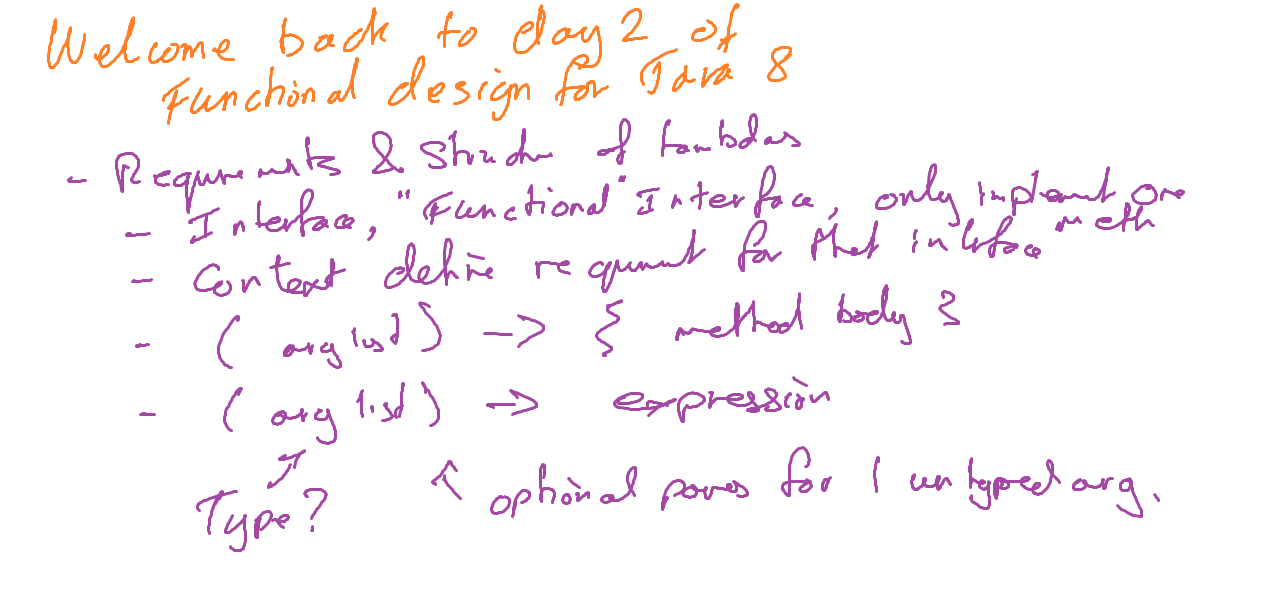 Welcome back to day 2 of
Functional design for Java 8
- Requirements & Structure of Lambdas
- Interface, "Functional" Interface, only implement one meth
- Context define requirement for that interface
- ( arg list ) -> { method body }
- ( arg list ) -> expression
Type? ↑ optional parens for 1 untyped arg.